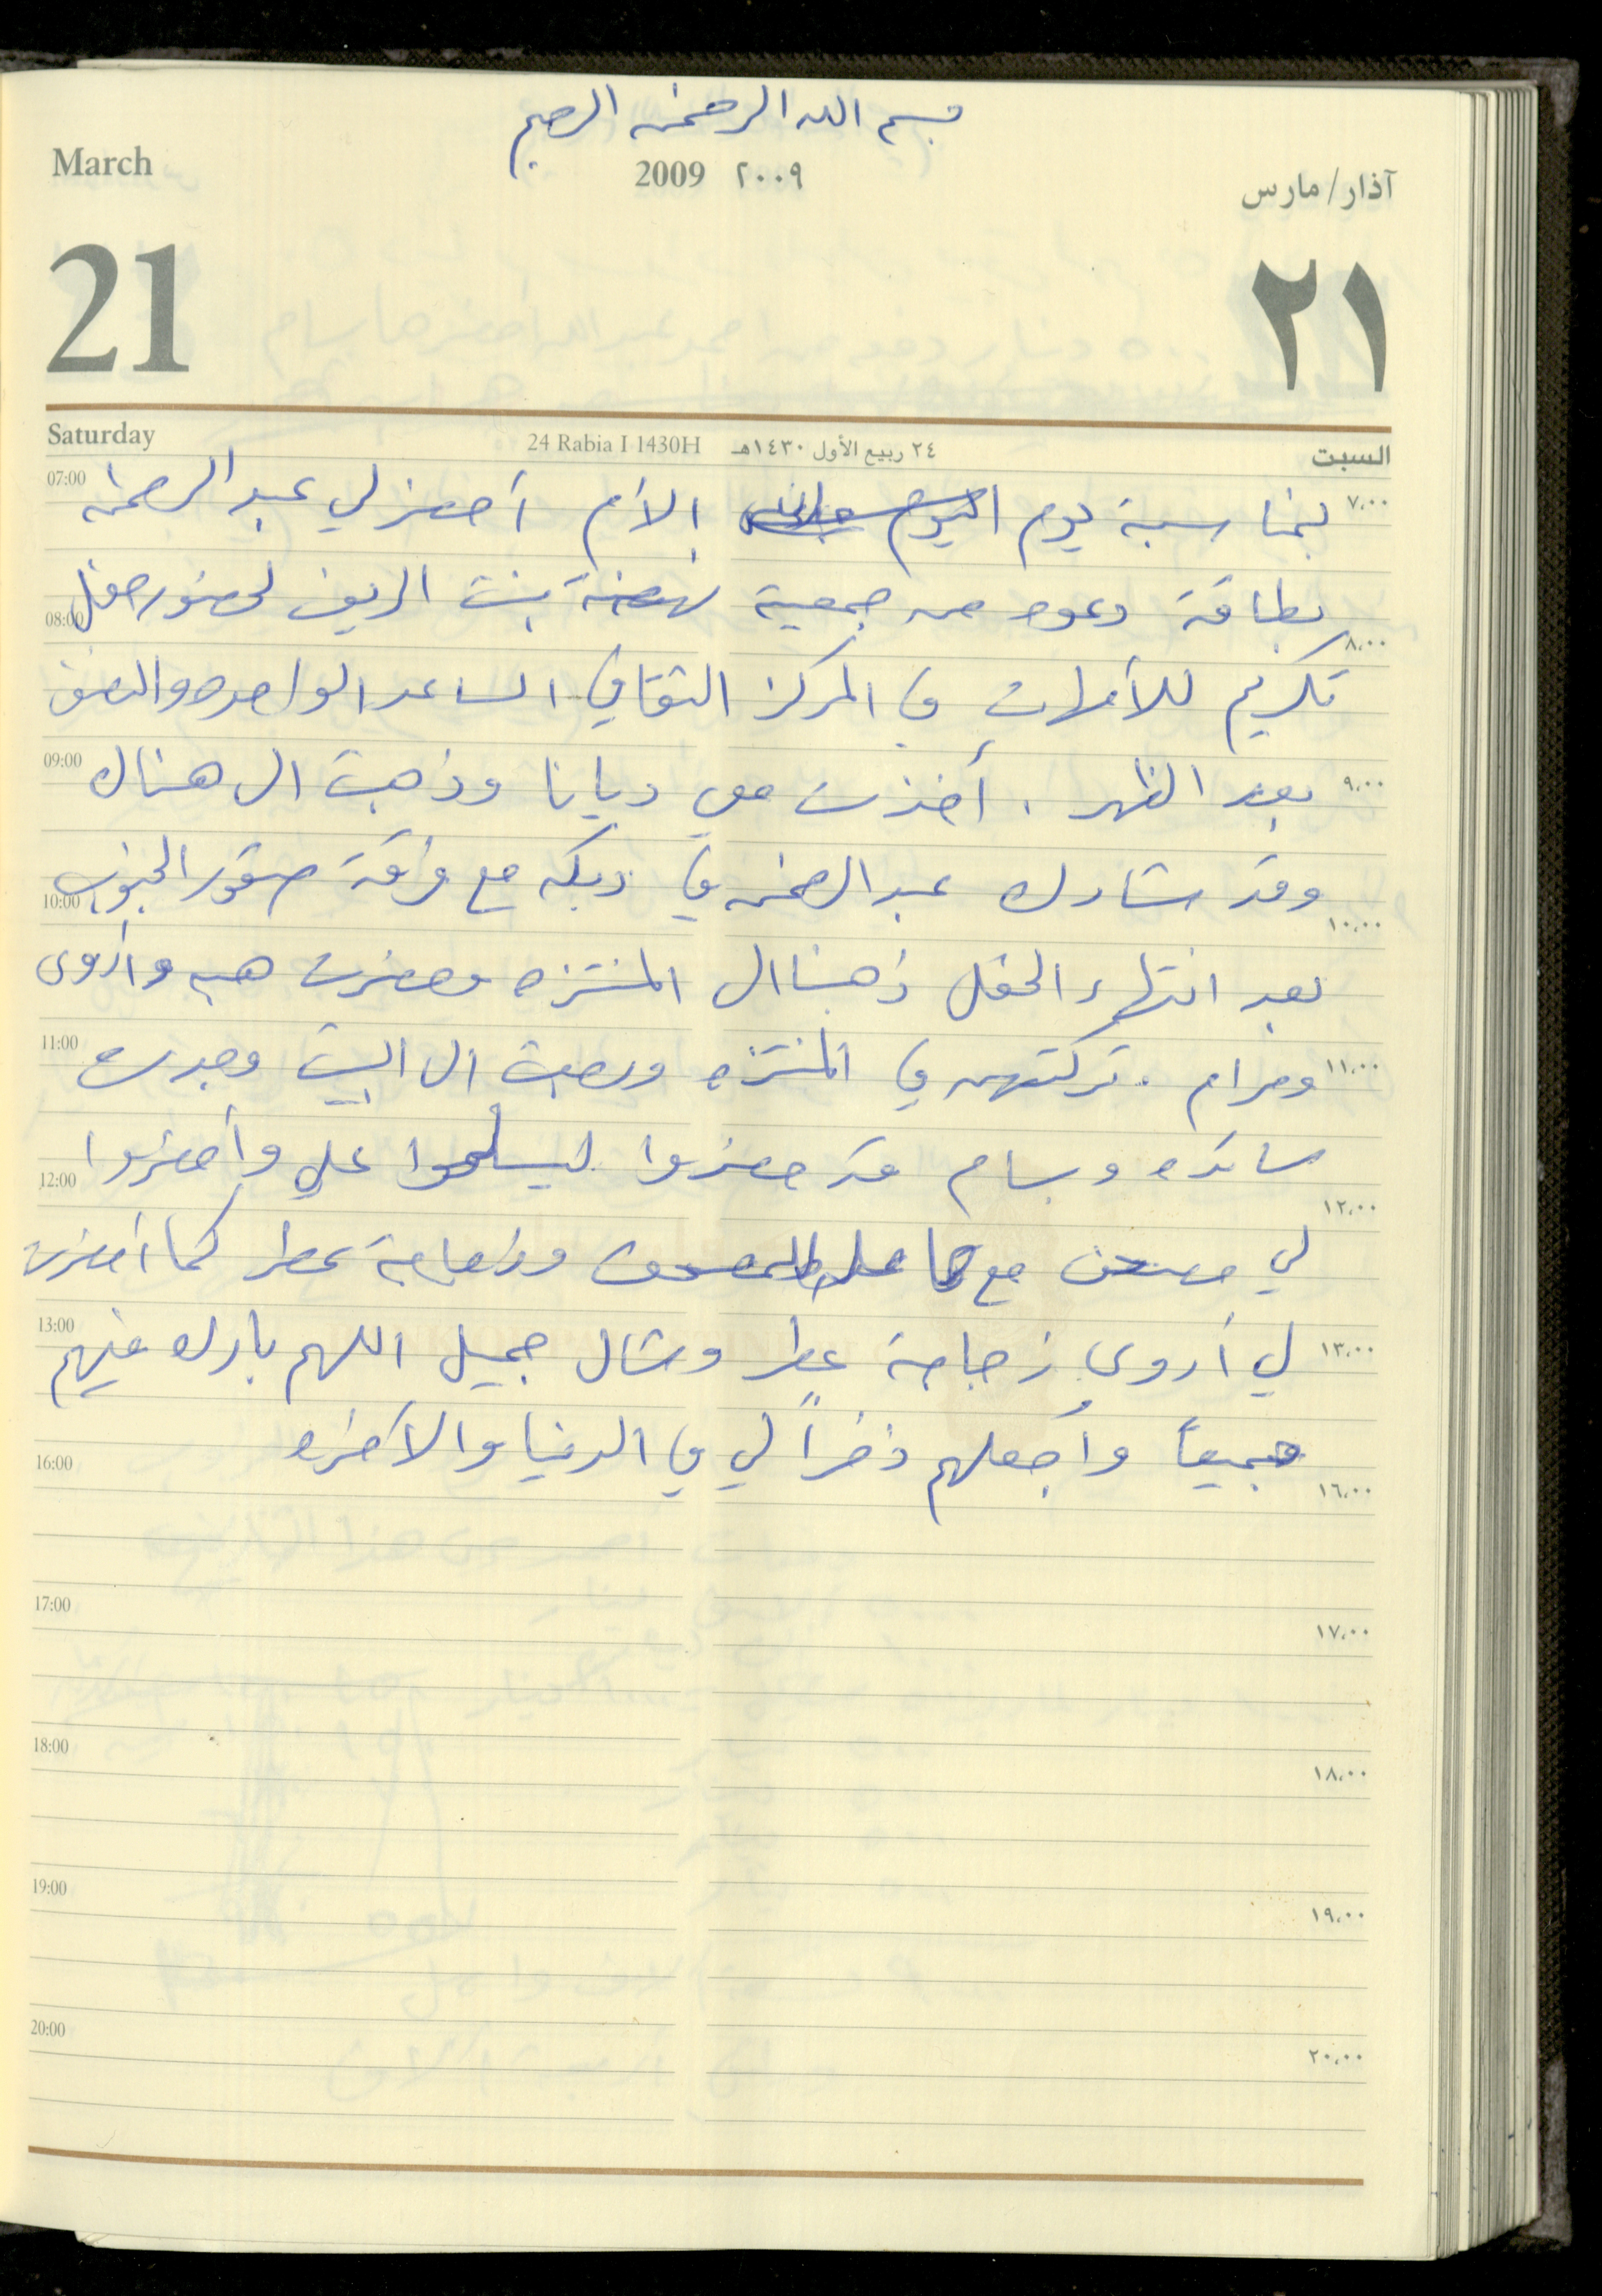 بسم الله الرحمن الرحيم
March
2009 ٢٠٠٩
آذار/مارس
21
٢١
Saturday
24 Rabia I 1430H ٢٤ ربيع الأول ١٤٣٠هـ
السبت
07:00 ٧،٠٠
بمناسبة يوم اليوم الأم أحضر لي عبد الرحمن
بطاقة دعوه من جمعية نهضة بنت الريف لحضور حفل
08:00 ٨،٠٠
تكريم للأمهات في المركز الثقافي الساعه الواحده والنصف
09:00 ٩،٠٠
بعد الظهر . أخذت معي ديانا وذهبت الى هناك
وقد شارك عبد الرحمن في دبكه مع فرقة صقور الجنوب
10:00 ١٠،٠٠
بعد انتهاء الحفل ذهبنا الى المنتزه وحضرت هبه وأروى
11:00 ١١،٠٠
ومرام . تركتهم في المنتزه ورجعت الى البيت وجدت
سائده وبسام قد حضروا ليسلموا علي وأحضروا
12:00 ١٢،٠٠
لي مصحف مع حامل المصحف وزجاجة عطر كما أحضرت
13:00 ١٣،٠٠
لي أروى زجاجة عطر وشال جميل اللهم بارك فيهم
جميعاً وأجعلهم ذخراً لي في الدنيا والآخره
16:00 ١٦،٠٠
17:00 ١٧،٠٠
18:00 ١٨،٠٠
19:00 ١٩،٠٠
20:00 ٢٠،٠٠